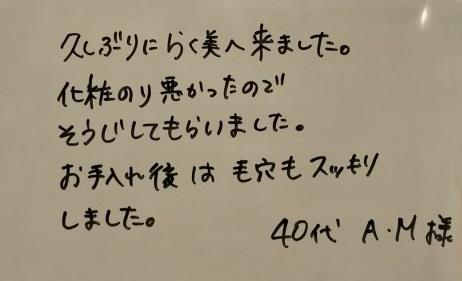 久しぶりにらく美へ来ました。
化粧のり悪かったので
そうじしてもらいました。
お手入れ後は毛穴もスッキリ
しました。
40代 A・M様